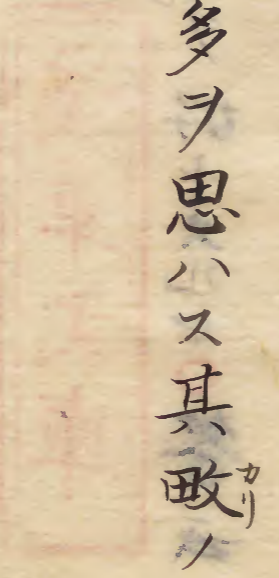 多ヲ思ハス其畋ノ
カリ